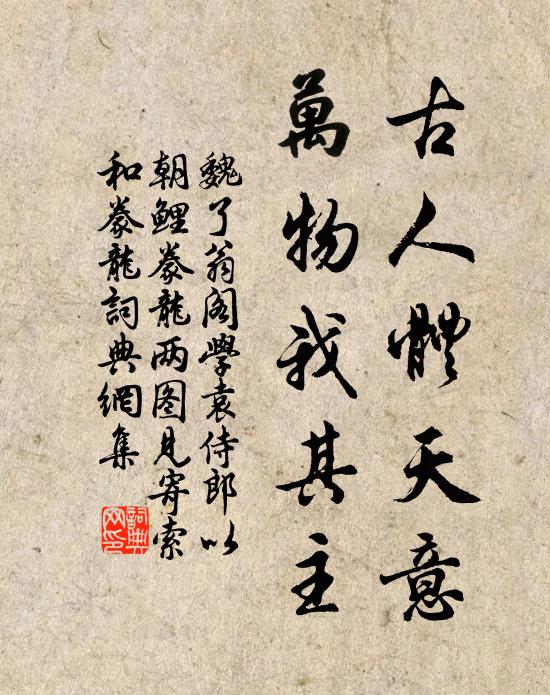 古人體天意
萬物我其主
魏了翁閣學袁侍郎以
朝鯉豢龍两图見寄索
和豢龍詞典網集
詞典
网印